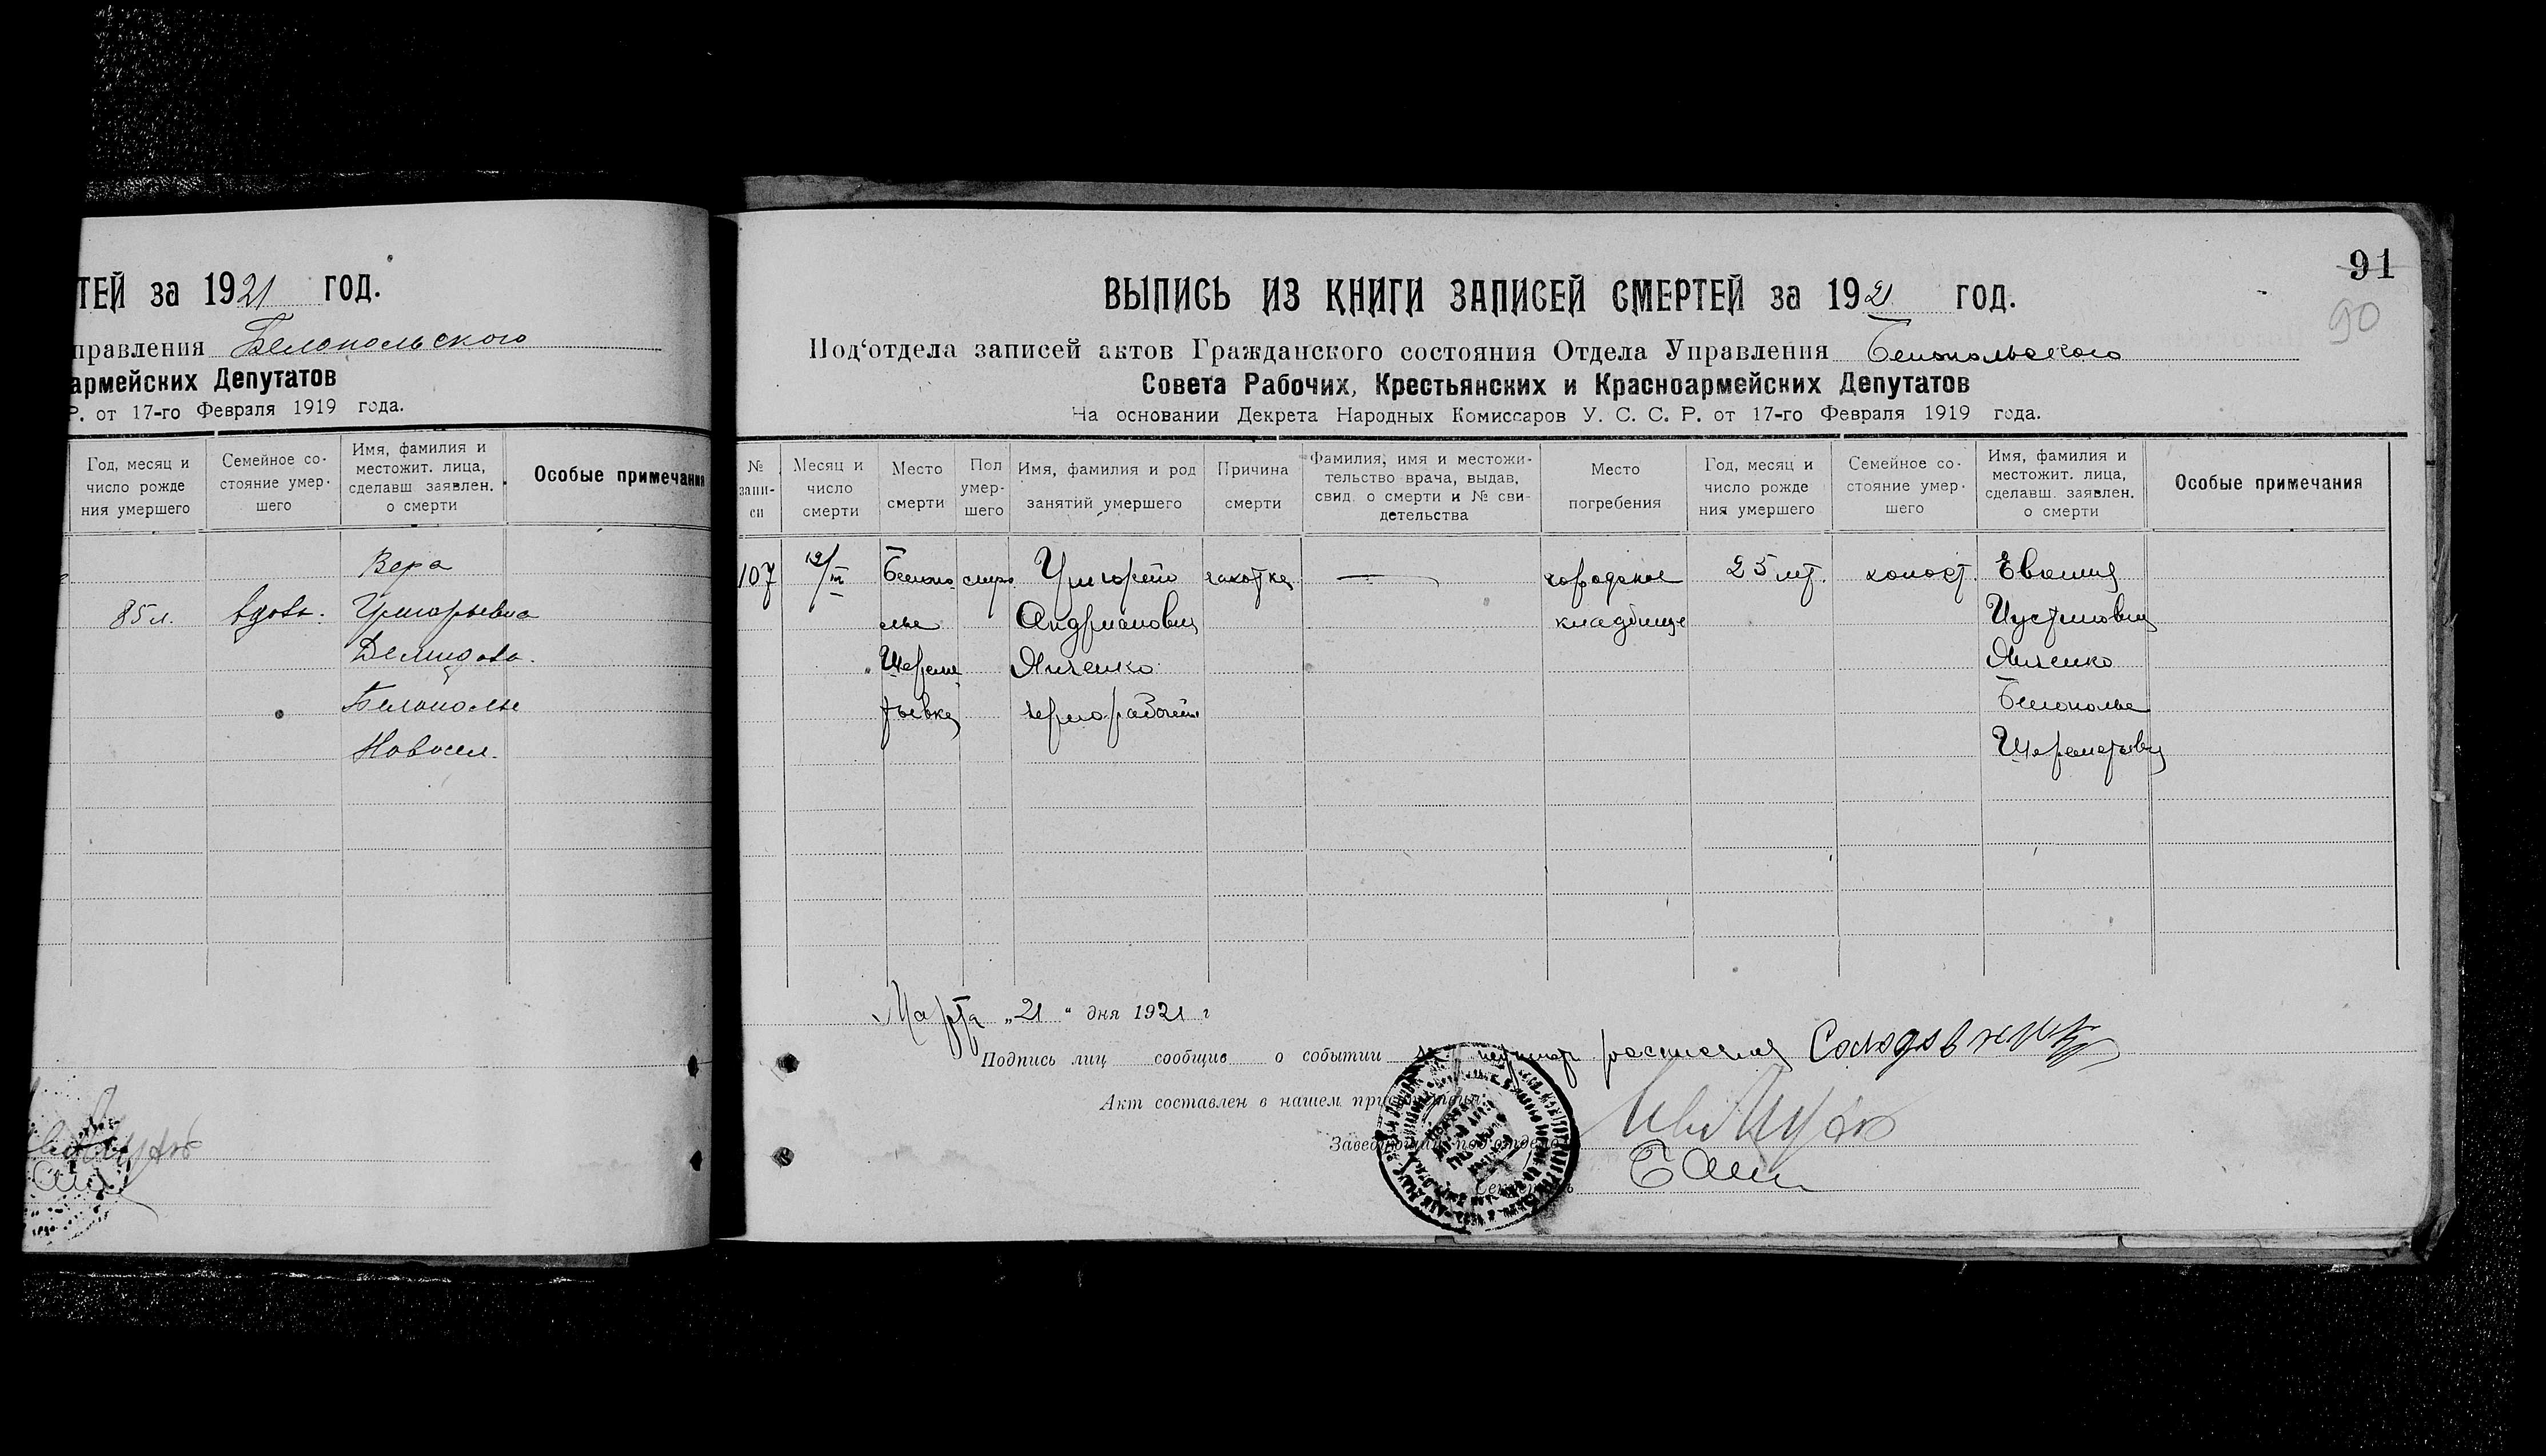 ТЕЙ за 1921 год.
правления Белопольского
армейских Депутатов
Р. от 17-го Февраля 1919 года.
Год, месяц и число рожде ния умершего
Семейное со- стояние умер- шего
Имя, фамилия и местожит. лица, сделавш заявлен. о смерти
Особые примечания
Вера
85 л. вдова. Григорьевна
Демидова.
Белополье
Новосел.
91
90
ВЫПИСЬ ИЗ КНИГИ ЗАПИСЕЙ СМЕРТЕЙ за 1921 год.
Под‘отдела записей актов Гражданского состояния Отдела Управления Белопольского
Совета Рабочих, Крестьянских и Красноармейских Депутатов
На основании Декрета Народных Комиссаров У. С. С. Р. от 17-го Февраля 1919 года.
№ запи- си
Месяц и число смерти
Место смерти
Пол умер- шего
Имя, фамилия и род занятий умершего
Причина смерти
Фамилия, имя и местожи- тельство врача, выдав, свид. о смерти и № сви- детельства
Место погребения
Год, месяц и число рожде ния умершего
Семейное со- стояние умер- шего
Имя, фамилия и местожит. лица, сделавш. заявлен. о смерти
Особые примечания
107 12/III Белопо Григорий чахотка городское 25 лет. холост.
лье Андрианович кладбище Иустинович
Шереме
тьевка чернорабочий Белополье
Марта „21 “ дня 1921 г
Подпись лиц сообщив о событии
Акт составлен в нашем
Секретарь